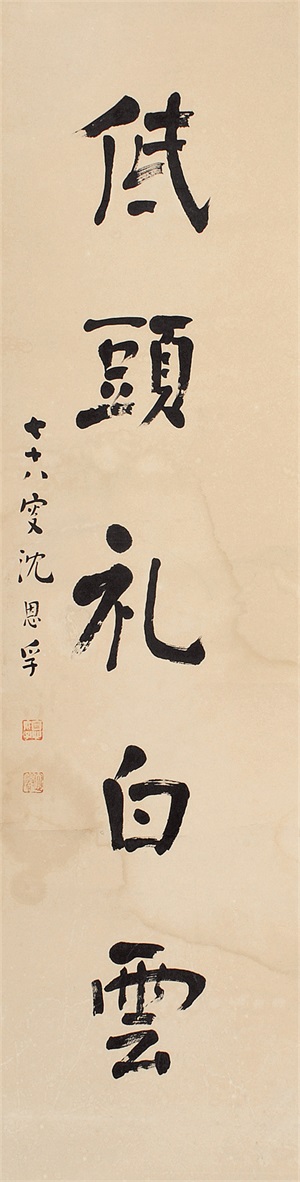 低頭礼白雲
七十八叟沈恩孚